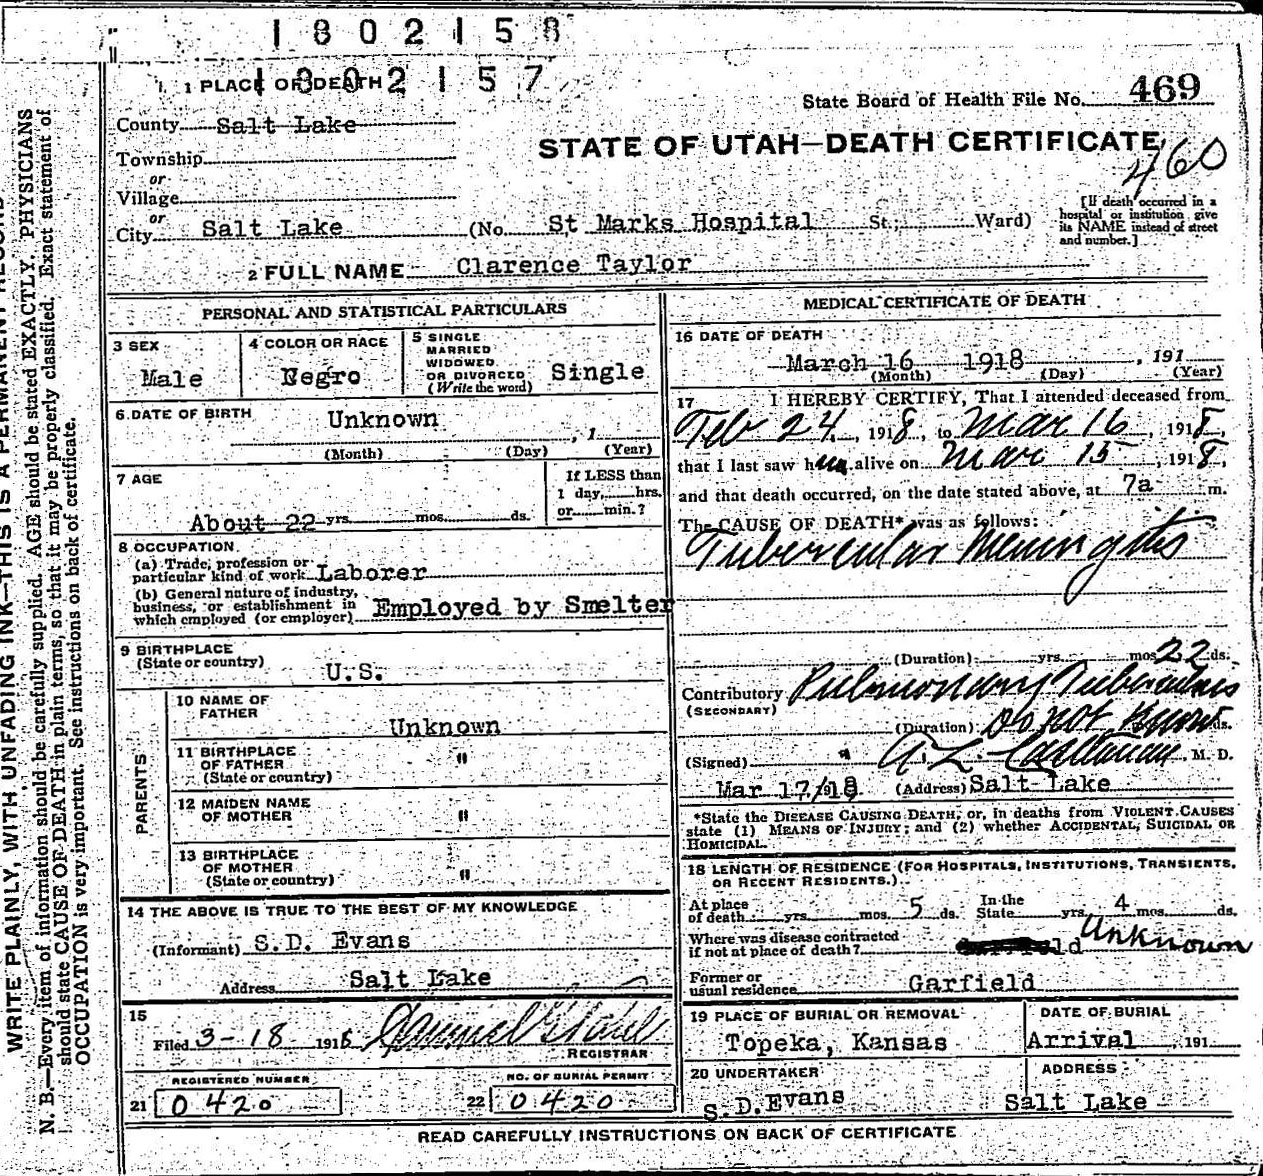 1802158
1302157
1 PLACE OF DEATH
State Board of Health File No. 469
County Salt Lake
STATE OF UTAH—DEATH CERTIFICATE
460
Township
or
Village
or
City Salt Lake (No. St Marks Hospital St.; Ward)
[If death occurred in a
hospital or institution give
its NAME instead of street
and number.]
2 FULL NAME Clarence Taylor
PERSONAL AND STATISTICAL PARTICULARS
3 SEX
Male
4 COLOR OR RACE
Negro
5 SINGLE
MARRIED
WIDOWED
OR DIVORCED
(Write the word)
Single
6 DATE OF BIRTH
Unknown
, 1
(Month) (Day) (Year)
7 AGE
About 22 yrs. mos. ds.
If LESS than
1 day, hrs.
or min.?
8 OCCUPATION
(a) Trade, profession or
particular kind of work Laborer
(b) General nature of industry,
business, or establishment in
which employed (or employer) Employed by Smelter
9 BIRTHPLACE
(State or country)
U.S.
PARENTS
10 NAME OF
FATHER
Unknown
11 BIRTHPLACE
OF FATHER
(State or country)
"
12 MAIDEN NAME
OF MOTHER
"
13 BIRTHPLACE
OF MOTHER
(State or country)
"
14 THE ABOVE IS TRUE TO THE BEST OF MY KNOWLEDGE
(Informant) S.D. Evans
Address Salt Lake
15
Filed 3-18 1918
REGISTRAR
REGISTERED NUMBER
21 0420
NO. OF BURIAL PERMIT
22 0420
MEDICAL CERTIFICATE OF DEATH
16 DATE OF DEATH
March 16 1918 , 191
(Month) (Day) (Year)
17 I HEREBY CERTIFY, That I attended deceased from
Feb 24, 1918, to Mar 16, 1918,
that I last saw him alive on Mar 15, 1918,
and that death occurred, on the date stated above, at 7a m.
The CAUSE OF DEATH* was as follows:
Tubercular Meningitis
(Duration) yrs. mos. 22 ds.
Contributory Pulmonary Tuberculosis
(SECONDARY)
(Duration) Do not know ds.
(Signed) A. L. M. D.
Mar 17/18 (Address) Salt Lake
*State the DISEASE CAUSING DEATH, or, in deaths from VIOLENT CAUSES
state (1) MEANS OF INJURY; and (2) whether ACCIDENTAL, SUICIDAL OR
HOMICIDAL.
18 LENGTH OF RESIDENCE (FOR HOSPITALS, INSTITUTIONS, TRANSIENTS,
OR RECENT RESIDENTS.)
At place
of death yrs. mos. 5 ds.
In the
State yrs. 4 mos. ds.
Where was disease contracted
if not at place of death? Unknown
Former or
usual residence Garfield
19 PLACE OF BURIAL OR REMOVAL
Topeka, Kansas
DATE OF BURIAL
Arrival , 191
20 UNDERTAKER
S.D. Evans
ADDRESS
Salt Lake
READ CAREFULLY INSTRUCTIONS ON BACK OF CERTIFICATE
WRITE PLAINLY, WITH UNFADING INK—THIS IS A PERMANENT RECORD
N. B.—Every item of information should be carefully supplied. AGE should be stated EXACTLY. PHYSICIANS
should state CAUSE OF DEATH in plain terms, so that it may be properly classified. Exact statement of
OCCUPATION is very important. See instructions on back of certificate.